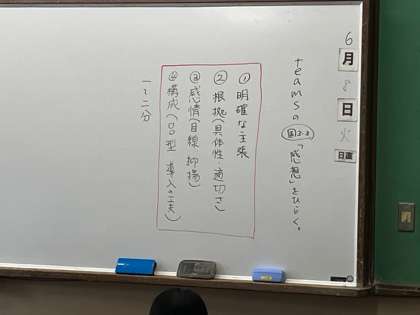 6
月
8
日
火
日直
teamsの 国2-3 「感想」をひらく。
① 明確な主張
② 根拠(具体性・適切さ)
③ 感情(目線 抑揚)
④ 構成(○○型 導入の工夫)
一〜二分